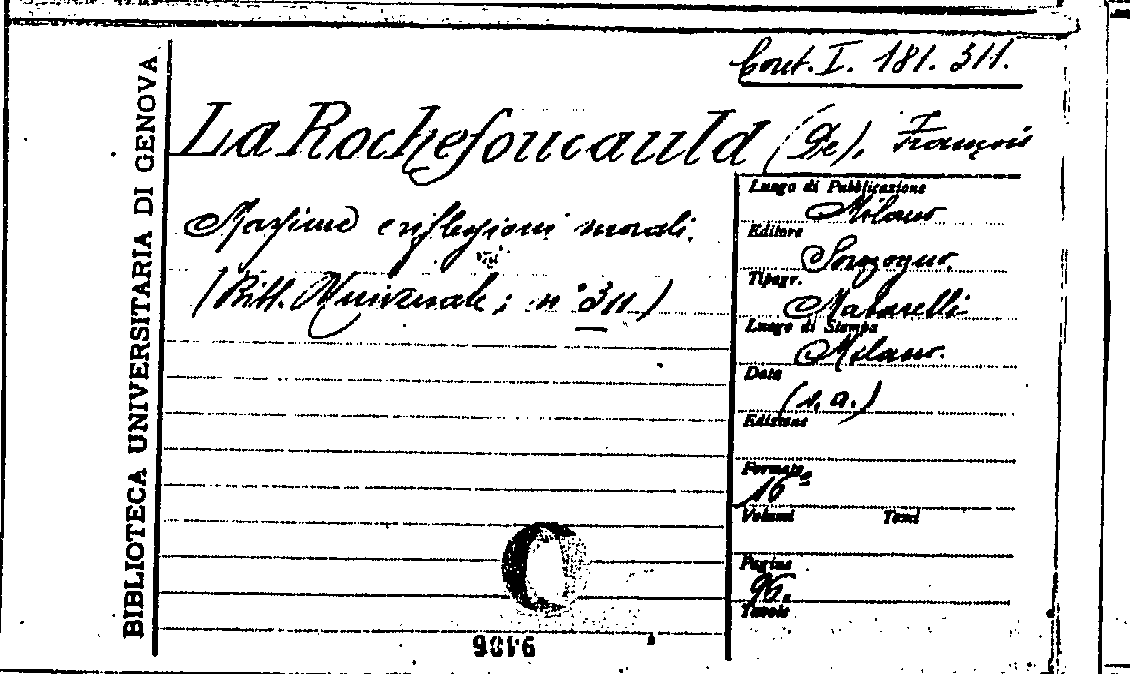 Cont. I. 181. 311.
BIBLIOTECA UNIVERSITARIA DI GENOVA
La Rochefoucauld (De), François
Massime e riflessioni morali.
(Bibl. Universale; n° 311)
Luogo di Pubblicazione
Milano
Editore
Sonzogno.
Tipogr.
Matarelli
Luogo di Stampa
Milano.
Data
(s. a.)
Edizione
Formato
16°
Volumi Tomi
Pagine
96.
Tavole